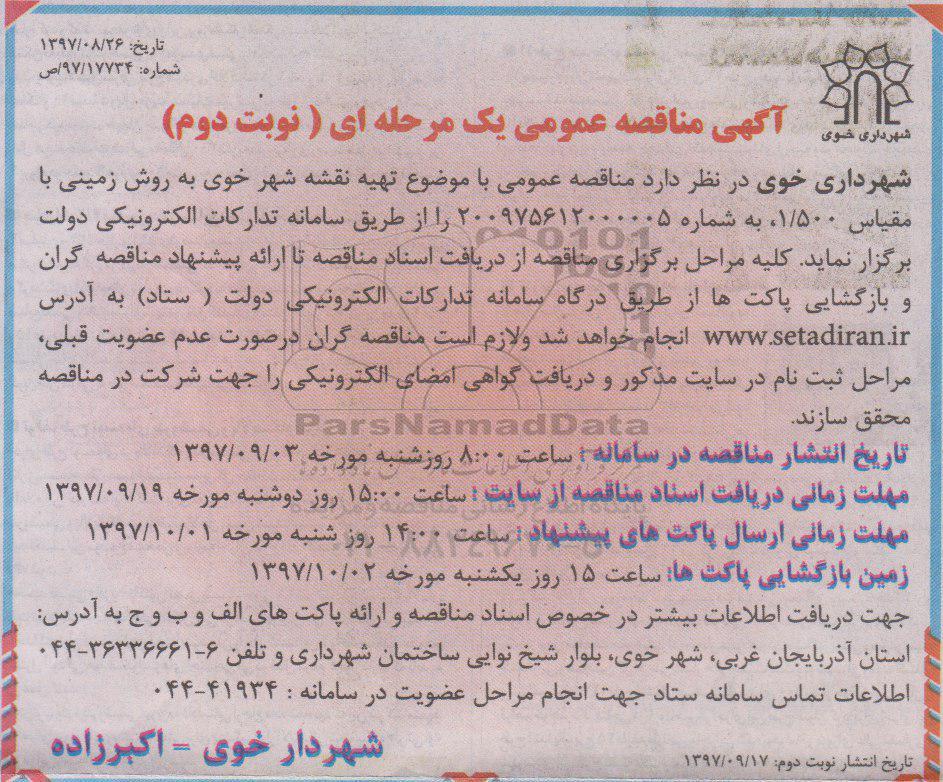 تاریخ: ۱۳۹۷/۰۸/۲۶
شماره: ۹۷/۱۷۷۳۴/ص
شهرداری خوی
آگهی مناقصه عمومی یک مرحله ای ( نوبت دوم)
شهرداری خوی در نظر دارد مناقصه عمومی با موضوع تهیه نقشه شهر خوی به روش زمینی با
مقیاس ۱/۵۰۰، به شماره ۲۰۰۹۷۵۶۱۲۰۰۰۰۰۵ را از طریق سامانه تدارکات الکترونیکی دولت
برگزار نماید. کلیه مراحل برگزاری مناقصه از دریافت اسناد مناقصه تا ارائه پیشنهاد مناقصه گران
و بازگشایی پاکت ها از طریق درگاه سامانه تدارکات الکترونیکی دولت ( ستاد) به آدرس
www.setadiran.ir انجام خواهد شد ولازم است مناقصه گران درصورت عدم عضویت قبلی،
مراحل ثبت نام در سایت مذکور و دریافت گواهی امضای الکترونیکی را جهت شرکت در مناقصه
محقق سازند.
ParsNamadData
تاریخ انتشار مناقصه در سامانه : ساعت ۸:۰۰ روزشنبه مورخه ۱۳۹۷/۰۹/۰۳
مهلت زمانی دریافت اسناد مناقصه از سایت : ساعت ۱۵:۰۰ روز دوشنبه مورخه ۱۳۹۷/۰۹/۱۹
مهلت زمانی ارسال پاکت های پیشنهاد : ساعت ۱۴:۰۰ روز شنبه مورخه ۱۳۹۷/۱۰/۰۱
زمین بازگشایی پاکت ها: ساعت ۱۵ روز یکشنبه مورخه ۱۳۹۷/۱۰/۰۲
جهت دریافت اطلاعات بیشتر در خصوص اسناد مناقصه و ارائه پاکت های الف و ب و ج به آدرس:
استان آذربایجان غربی، شهر خوی، بلوار شیخ نوایی ساختمان شهرداری و تلفن ۶-۳۶۳۳۶۶۶۱-۰۴۴
اطلاعات تماس سامانه ستاد جهت انجام مراحل عضویت در سامانه : ۴۱۹۳۴-۰۴۴
شهردار خوی - اکبرزاده
تاریخ انتشار نوبت دوم: ۱۳۹۷/۰۹/۱۷